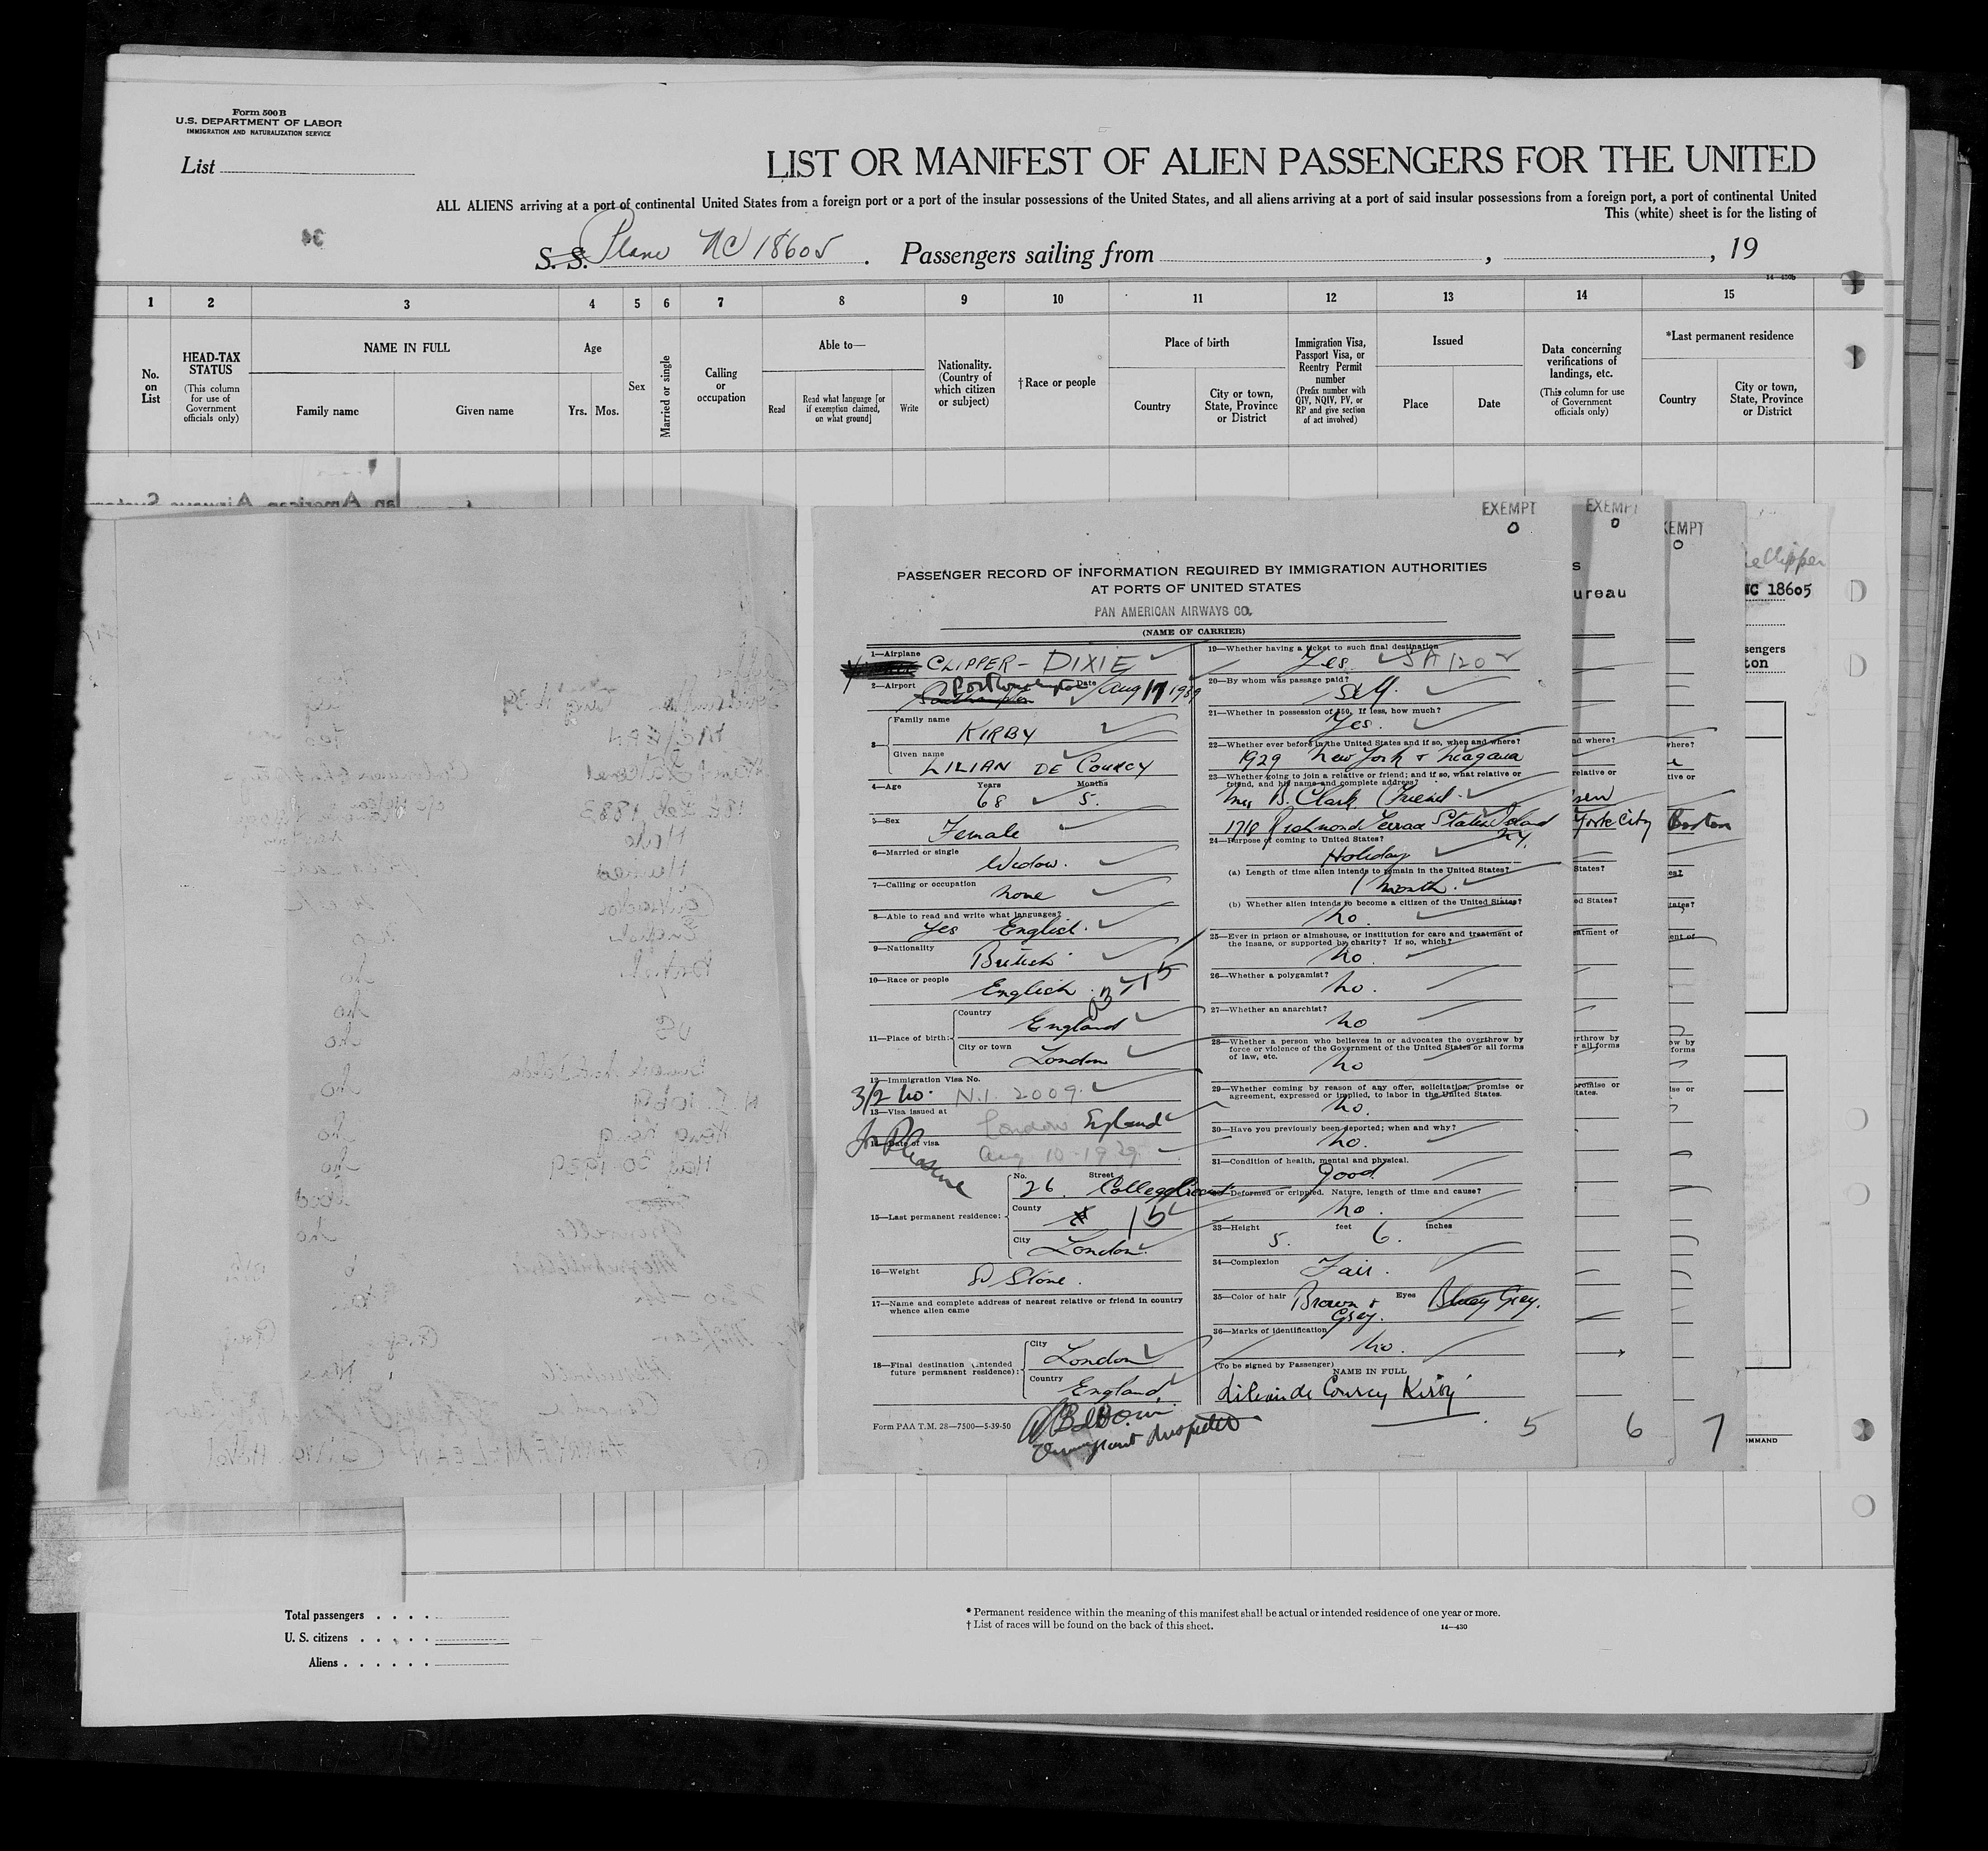 Form 500 B
U.S. DEPARTMENT OF LABOR
IMMIGRATION AND NATURALIZATION SERVICE
List
LIST OR MANIFEST OF ALIEN PASSENGERS FOR THE UNITED
ALL ALIENS arriving at a port of continental United States from a foreign port or a port of the insular possessions of the United States, and all aliens arriving at a port of said insular possessions from a foreign port, a port of continental United
This (white) sheet is for the listing of
34
S. S. Plane NC 18605 . Passengers sailing from , , 19
14—430b
1 2 3 4 5 6 7 8 9 10 11 12 13 14 15
No. on List
HEAD-TAX STATUS
(This column for use of Government officials only)
NAME IN FULL
Family name Given name
Age
Yrs. Mos.
Sex
Married or single
Calling or occupation
Able to—
Read
Read what language [or if exemption claimed, on what ground]
Write
Nationality. (Country of which citizen or subject)
†Race or people
Place of birth
Country
City or town, State, Province or District
Immigration Visa, Passport Visa, or Reentry Permit number
(Prefix number with QIV, NQIV, PV, or RP and give section of act involved)
Issued
Place Date
Data concerning verifications of landings, etc.
(This column for use of Government officials only)
*Last permanent residence
Country
City or town, State, Province or District
EXEMPT
0
EXEMPT
0
EMPT
0
Clipper
NC 18605
PASSENGER RECORD OF INFORMATION REQUIRED BY IMMIGRATION AUTHORITIES
AT PORTS OF UNITED STATES
PAN AMERICAN AIRWAYS CO.
(NAME OF CARRIER)
1—Airplane CLIPPER - DIXIE
2—Airport Southampton Port Washington Date Aug 17 1939
3— Family name KIRBY
Given name LILIAN DE COURCY
4—Age Years 68 Months 5.
5—Sex Female
6—Married or single Widow.
7—Calling or occupation none
8—Able to read and write what languages? Yes English.
9—Nationality British
10—Race or people English
11—Place of birth: Country England
City or town London
12—Immigration Visa No. N.I. 2009.
3/2 ho.
13—Visa issued at London England
14—Date of visa Aug 10-1939
for Pleasure
15—Last permanent residence: No. 26. Street College Crescent
County
City London
16—Weight 8 Stone.
17—Name and complete address of nearest relative or friend in country whence alien came
18—Final destination (intended future permanent residence): City London
Country England
Form PAA T.M. 28—7500—5-39-50
Immigrant Inspector
19—Whether having a ticket to such final destination Yes SA 120
20—By whom was passage paid? Self.
21—Whether in possession of $50. If less, how much? Yes.
22—Whether ever before in the United States and if so, when and where?
1929 New York & Niagara
23—Whether going to join a relative or friend; and if so, what relative or friend, and his name and complete address?
Mrs B. Clark. (Friend.
1718 Richmond Terrace Staten Island N.Y.
24—Purpose of coming to United States? Holiday
(a) Length of time alien intends to remain in the United States? 1 month.
(b) Whether alien intends to become a citizen of the United States? no.
25—Ever in prison or almshouse, or institution for care and treatment of the insane, or supported by charity? If so, which? no.
26—Whether a polygamist? no.
27—Whether an anarchist? no
28—Whether a person who believes in or advocates the overthrow by force or violence of the Government of the United States or all forms of law, etc. no
29—Whether coming by reason of any offer, solicitation, promise or agreement, expressed or implied, to labor in the United States. no.
30—Have you previously been deported; when and why? no.
31—Condition of health, mental and physical. good.
32—Deformed or crippled. Nature, length of time and cause? no.
33—Height 5. feet 6. inches
34—Complexion Fair.
35—Color of hair Brown & Grey. Eyes Bluey Grey.
36—Marks of identification no.
(To be signed by Passenger) NAME IN FULL
Lilian de Courcy Kirby
5 6 7
York City
Boston
Total passengers . . . .
U. S. citizens . . . . .
Aliens . . . . . .
* Permanent residence within the meaning of this manifest shall be actual or intended residence of one year or more.
† List of races will be found on the back of this sheet.
14—430